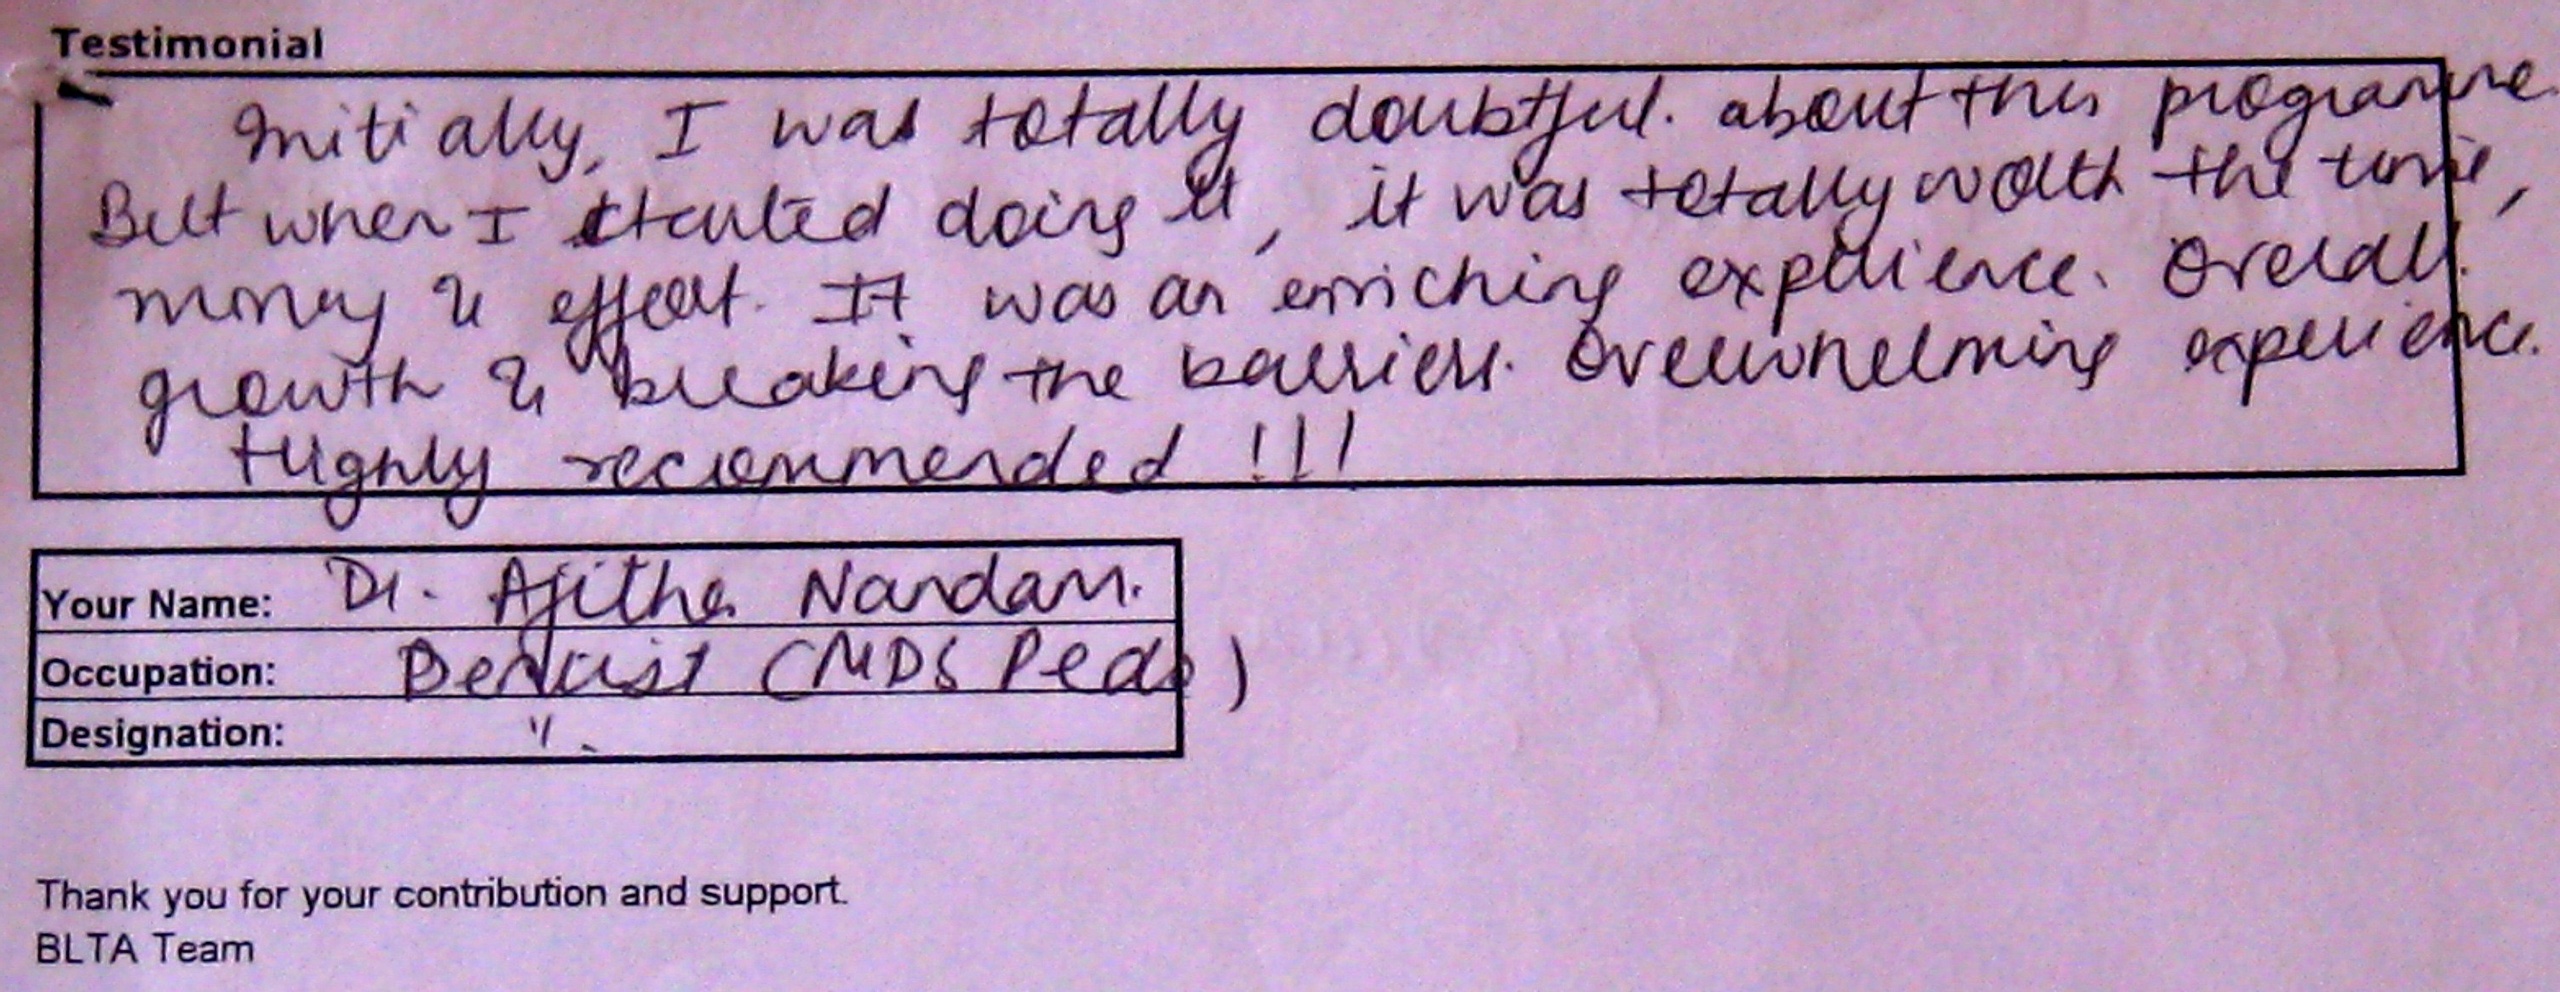 Testimonial
Initially, I was totally doubtful. about this programme.
But when I started doing it, it was totally worth the time,
money & effort. It was an enriching experience. Overall.
growth & breaking the barriers. Overwhelming experience.
Highly recommended !!!
Your Name: Dr. Ajitha Nandan.
Occupation: Dentist (MDS Pedo)
Designation: ".
Thank you for your contribution and support.
BLTA Team